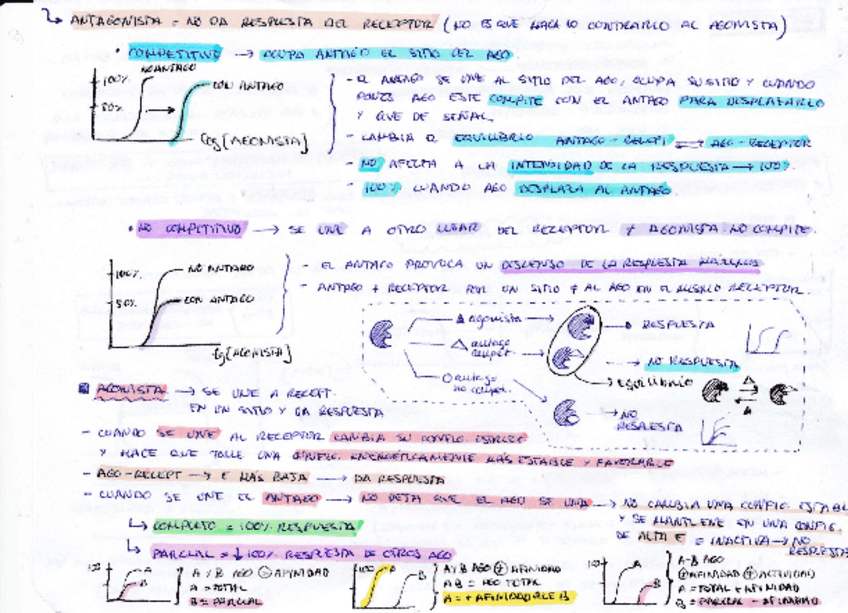 ↳ ANTAGONISTA = NO DA RESPUESTA DEL RECEPTOR (NO ES QUE HAGA LO CONTRARIO AL AGONISTA)
• COMPETITIVO → OCUPA ANTAGO EL SITIO DEL AGO.
100% NO ANTAGO
CON ANTAGO
50%
log [AGONISTA]
- EL ANTAGO SE UNE AL SITIO DEL AGO, OCUPA SU SITIO Y CUANDO
PONES AGO ESTE COMPITE CON EL ANTAGO PARA DESPLAZARLO
Y QUE DE SEÑAL.
- CAMBIA EL EQUILIBRIO ANTAGO-RECEPT ⇌ AGO-RECEPTOR
- NO AFECTA A LA INTENSIDAD DE LA RESPUESTA → 100%.
- 100% CUANDO AGO DESPLAZA AL ANTAGO.
• NO COMPETITIVO → SE UNE A OTRO LUGAR DEL RECEPTOR Y AGONISTA NO COMPITE.
100% NO ANTAGO
50% CON ANTAGO
log [AGONISTA]
- EL ANTAGO PROVOCA UN DESCENSO DE LA RESPUESTA MÁXIMA
- ANTAGO + RECEPTOR POR UN SITIO ≠ AL AGO EN EL MISMO RECEPTOR.
agonista
antago compet.
antago no compet.
→ RESPUESTA
→ NO RESPUESTA
→ EQUILIBRIO
→ NO RESPUESTA
AGONISTA → SE UNE A RECEPT.
EN UN SITIO Y DA RESPUESTA
- CUANDO SE UNE AL RECEPTOR CAMBIA SU CONFIG. ESPACIO
Y HACE QUE TOME UNA CONFIG. ENERGÉTICAMENTE MÁS ESTABLE Y FAVORABLE
- AGO-RECEPT → E MÁS BAJA → DA RESPUESTA
- CUANDO SE UNE EL ANTAGO → NO DEJA QUE EL AGO SE UNA → NO CAMBIA UNA CONFIG. ESTABLE
Y SE MANTIENE EN UNA CONFIG.
DE ALTA E = INACTIVA → NO
RESPUESTA
↳ COMPLETO = 100% RESPUESTA
↳ PARCIAL = ↓ 100% RESPUESTA DE OTROS AGO
100 A
B
A Y B AGO = AFINIDAD
A = TOTAL
B = PARCIAL
100 A
B
A Y B AGO ≠ AFINIDAD
AB = AGO TOTAL
A = + AFINIDAD QUE B
100 A
B
A-B AGO
≠ AFINIDAD ≠ ACTIVIDAD
A = TOTAL + AFINIDAD
B = PARCIAL - AFINIDAD